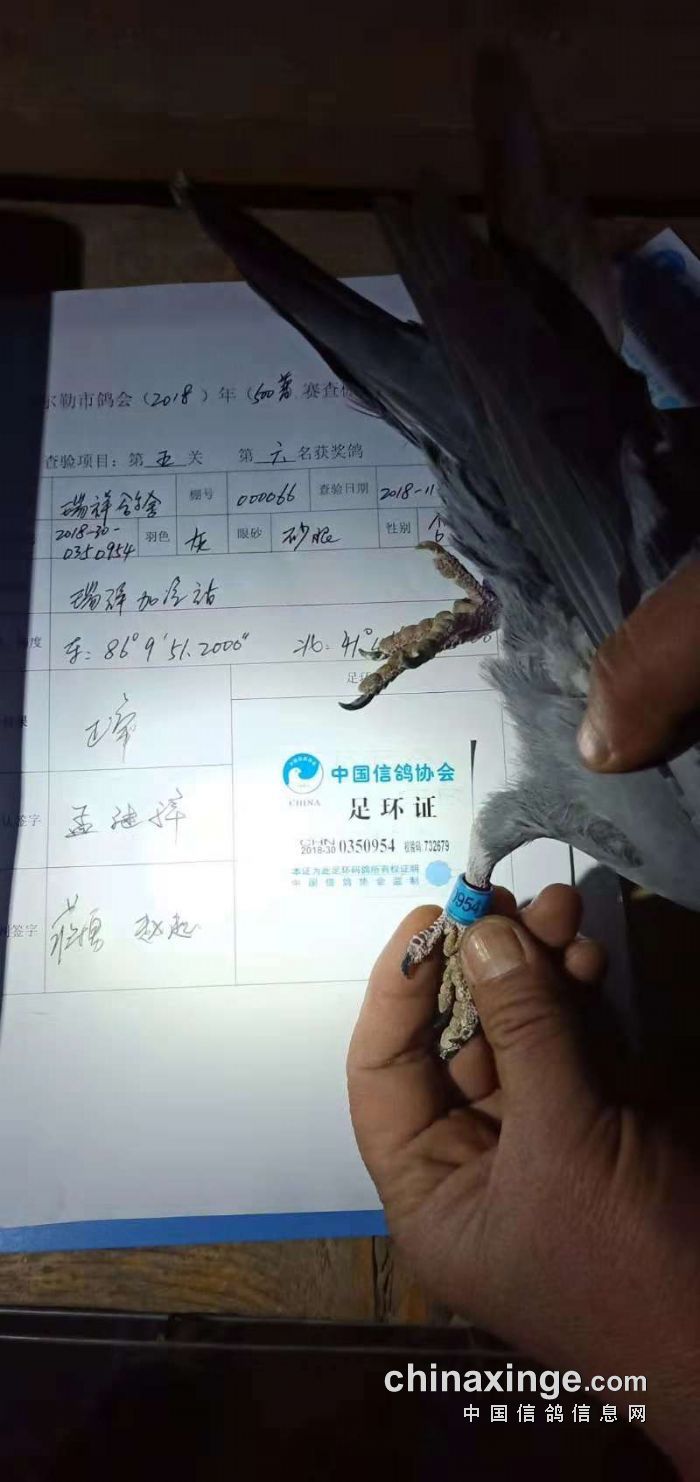 尔勒市鸽会（2018）年（500 赛查
查验项目：第 五 关 第 六 名获奖鸽
瑞祥鸽舍 棚号 000066 查验日期 2018-11
2018-30-0350954 羽色 灰 眼砂 砂眼 性别
瑞祥加
度 东：86°9′51.2000″ 北：41°
足环
正常
中国信鸽协会
CHINA
足环证
CHN
2018-30 0350954 校验码:732679
本证为此足环码鸽所有权证明
中国信鸽协会监制
签字 孟
签字
0954
chinaxinge.com
中国信鸽信息网